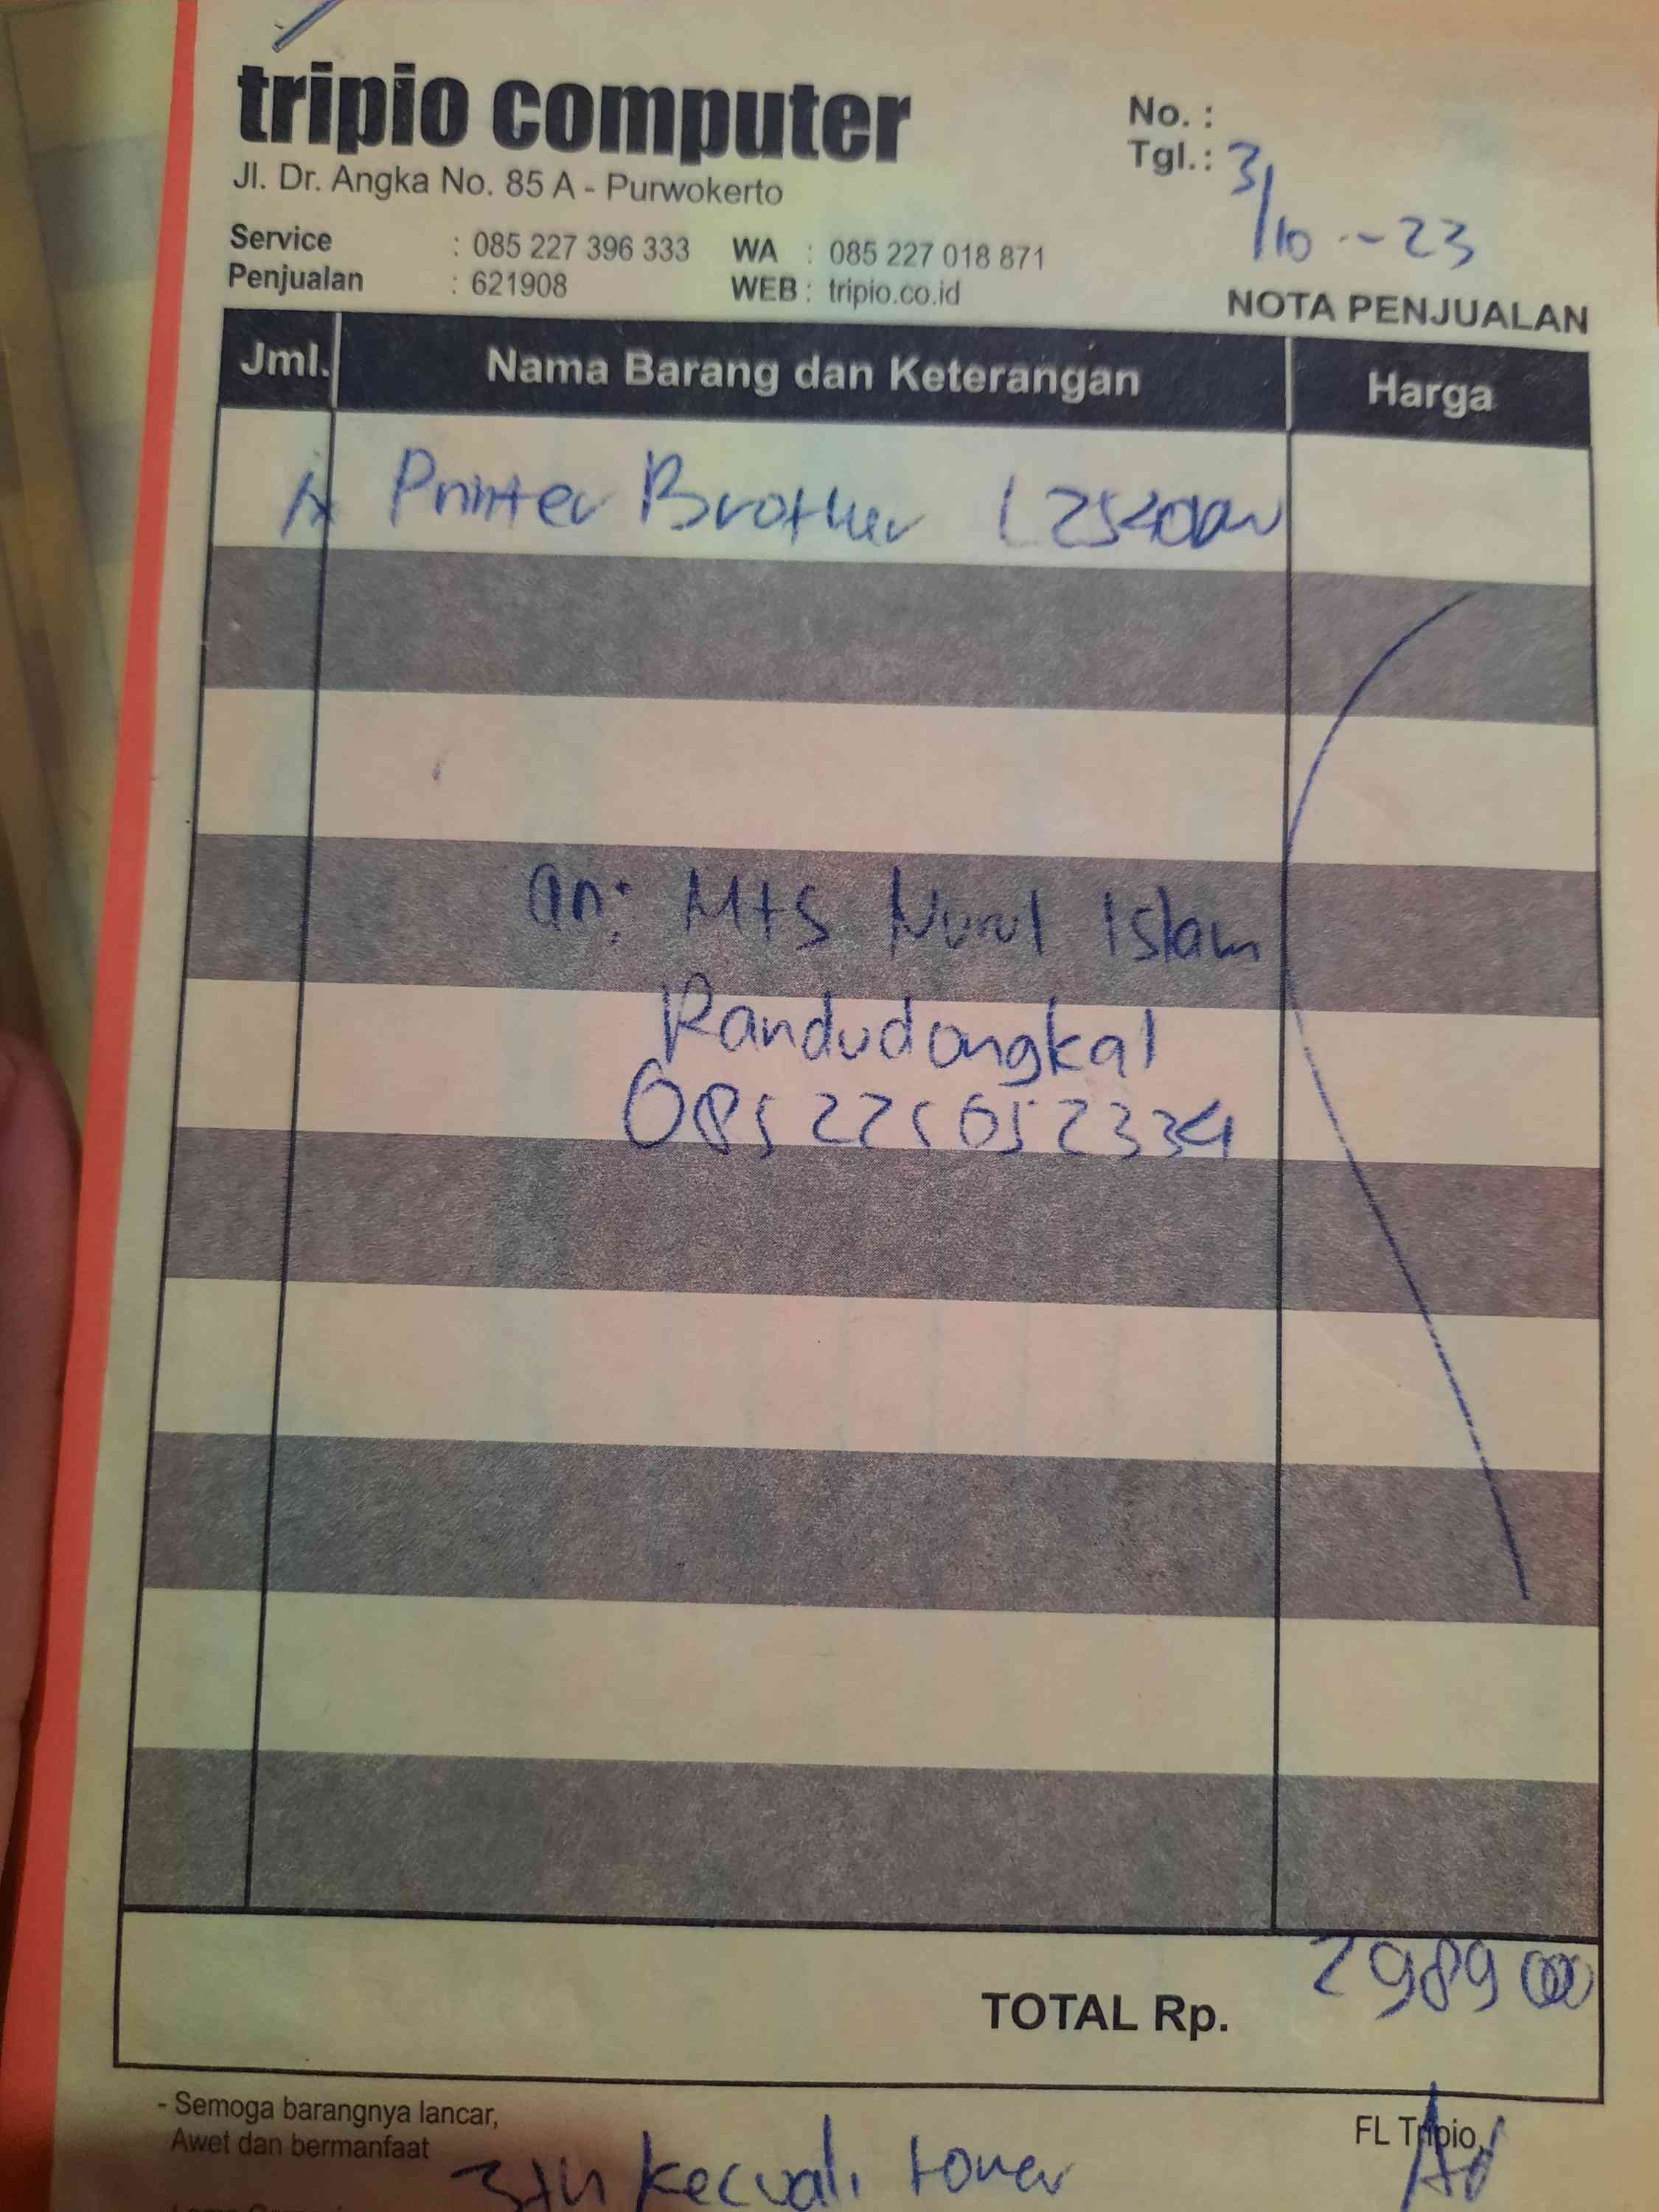 tripio computer
Jl. Dr. Angka No. 85 A - Purwokerto
No. :
Tgl. : 3/10 - 23
Service : 085 227 396 333 WA : 085 227 018 871
Penjualan : 621908 WEB : tripio.co.id
NOTA PENJUALAN
Jml. Nama Barang dan Keterangan Harga
Printer Brother L2540DW
an: MtS Nurul Islam
Randudongkal
085225052334
TOTAL Rp. 2989000
- Semoga barangnya lancar,
Awet dan bermanfaat
FL Tripio,
3th kecuali toner